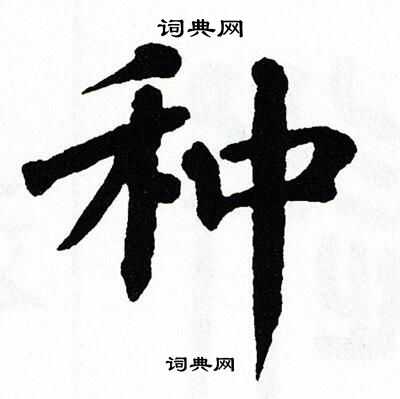 词典网
种
词典网